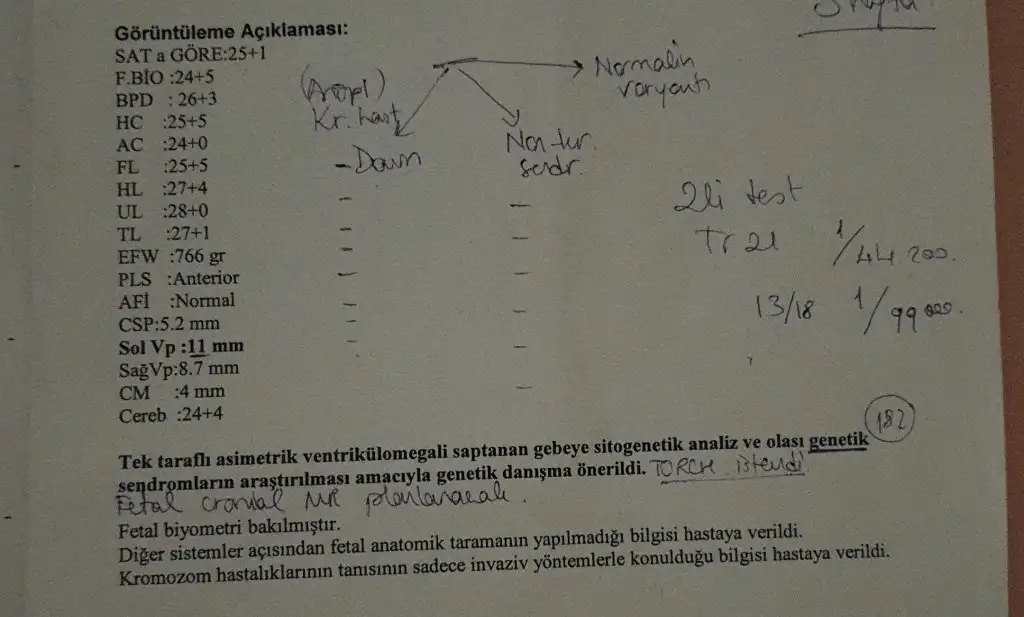 Görüntüleme Açıklaması:
SAT a GÖRE:25+1
F.BİO :24+5
BPD : 26+3
HC :25+5
AC :24+0
FL :25+5
HL :27+4
UL :28+0
TL :27+1
EFW :766 gr
PLS :Anterior
AFİ :Normal
CSP:5.2 mm
Sol Vp :11 mm
SağVp:8.7 mm
CM :4 mm
Cereb :24+4
Kr. hast
- Down
Normalin
varyantı
sendr.
2li test
Tr 21 1/44 200.
13/18 1/99 000.
182
Tek taraflı asimetrik ventrikülomegali saptanan gebeye sitogenetik analiz ve olası genetik
sendromların araştırılması amacıyla genetik danışma önerildi. TORCH istendi
Fetal cranial MR planlanacak.
Fetal biyometri bakılmıştır.
Diğer sistemler açısından fetal anatomik taramanın yapılmadığı bilgisi hastaya verildi.
Kromozom hastalıklarının tanısının sadece invaziv yöntemlerle konulduğu bilgisi hastaya verildi.